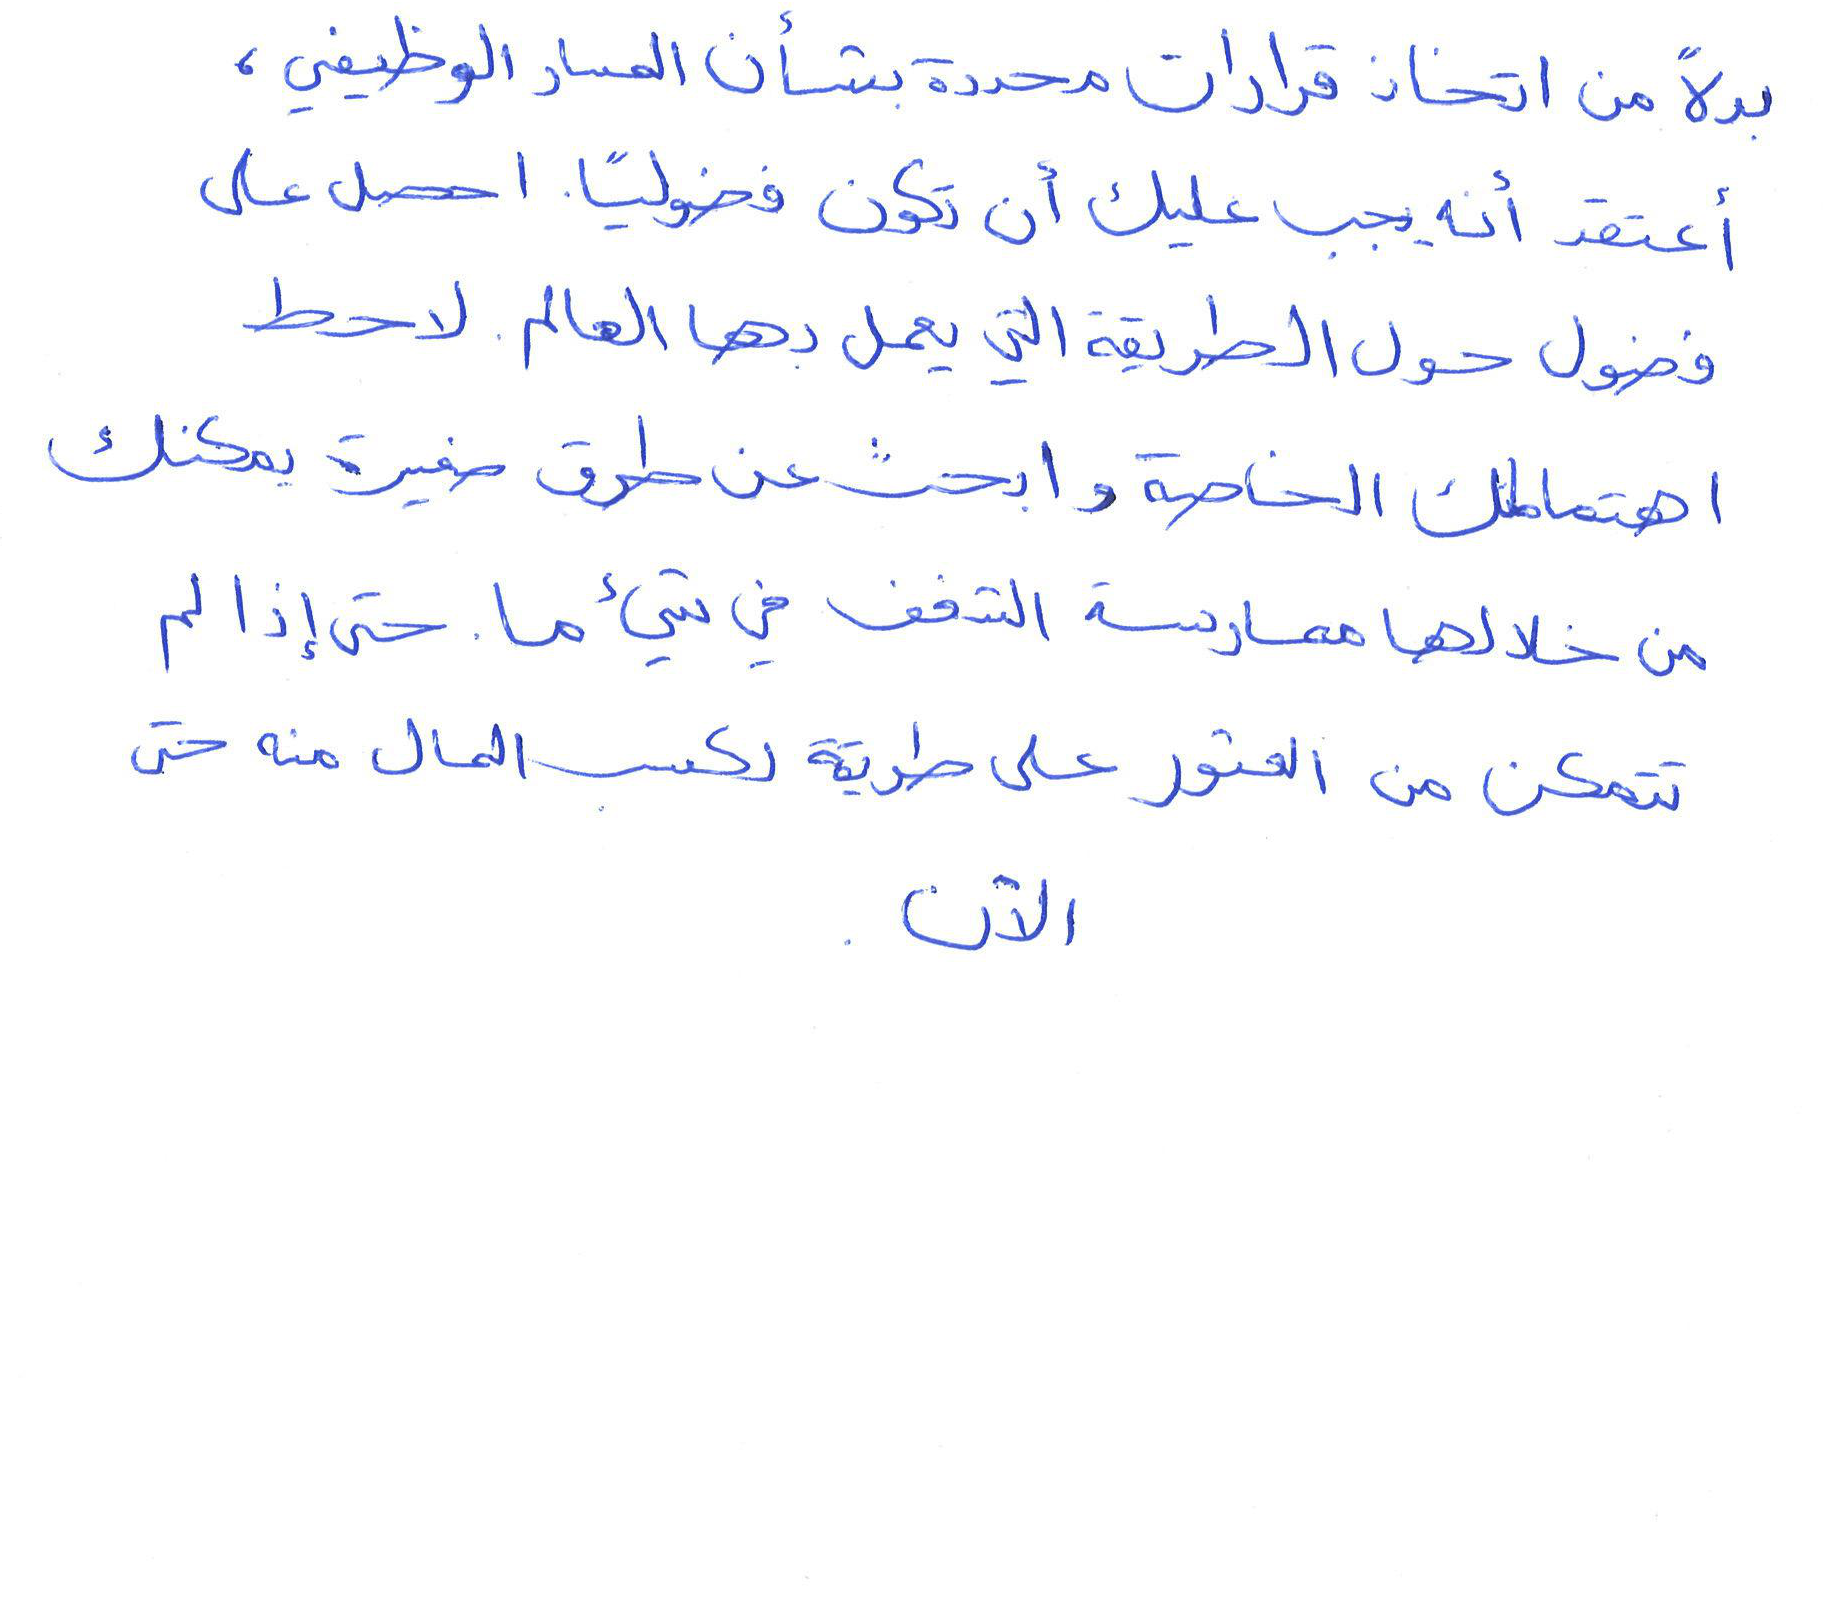 بدلاً من اتخاذ قرارات محددة بشأن المسار الوظيفي،
أعتقد أنه يجب عليك أن تكون فضوليًا. احصل على
فضول حول الطريقة التي يعمل بها العالم. لاحظ
اهتماماتك الخاصة وابحث عن طرق صغيرة يمكنك
من خلالها ممارسة الشغف في شيء ما. حتى إذا لم
تتمكن من العثور على طريقة لكسب المال منه حتى
الآن.